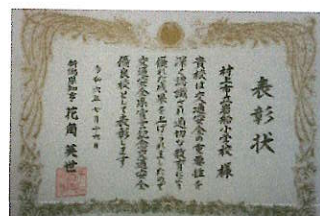 表彰状
村上市立岩船小学校 様
貴校は交通安全の重要性を
深く認識され適切な教育により
優れた成果を上げられましたので
交通安全県宣言記念交通安全
優良校として表彰します
令和六年七月十六日
新潟県知事 花角英世